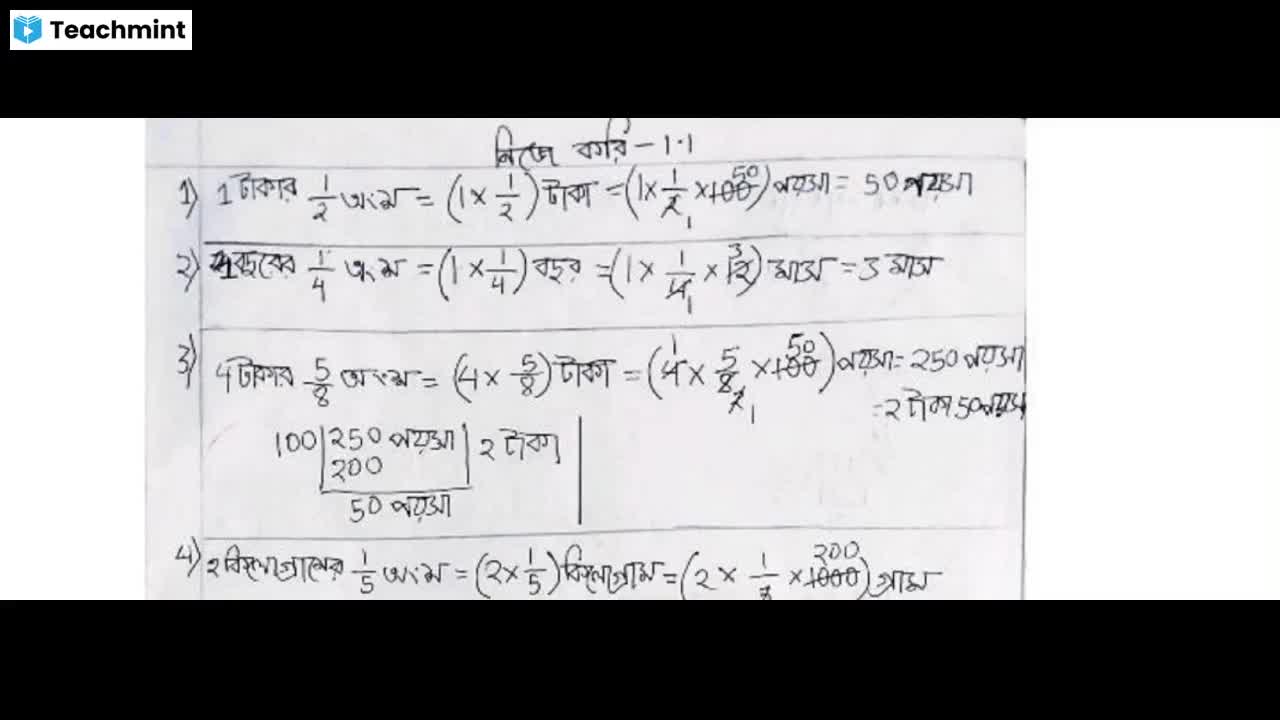 Teachmint
নিজে করি - 1.1
1) 1 টাকার 1/2 অংশ = (1 × 1/2) টাকা = (1 × 1/2 1 × 100 50) পয়সা = 50 পয়সা
২) 1 বছরের 1/4 অংশ = (1 × 1/4) বছর = (1 × 1/4 1 × 12 3) মাস = 3 মাস
3) 4 টাকার 5/8 অংশ = (4 × 5/8) টাকা = (4 1 × 5/8 2 1 × 100 50) পয়সা = 250 পয়সা
= ২ টাকা 50 পয়সা
100 | 250 পয়সা | ২ টাকা
200
50 পয়সা
4) 2 কিলোগ্রামের 1/5 অংশ = (2 × 1/5) কিলোগ্রাম = (2 × 1/5 × 1000 200) গ্রাম